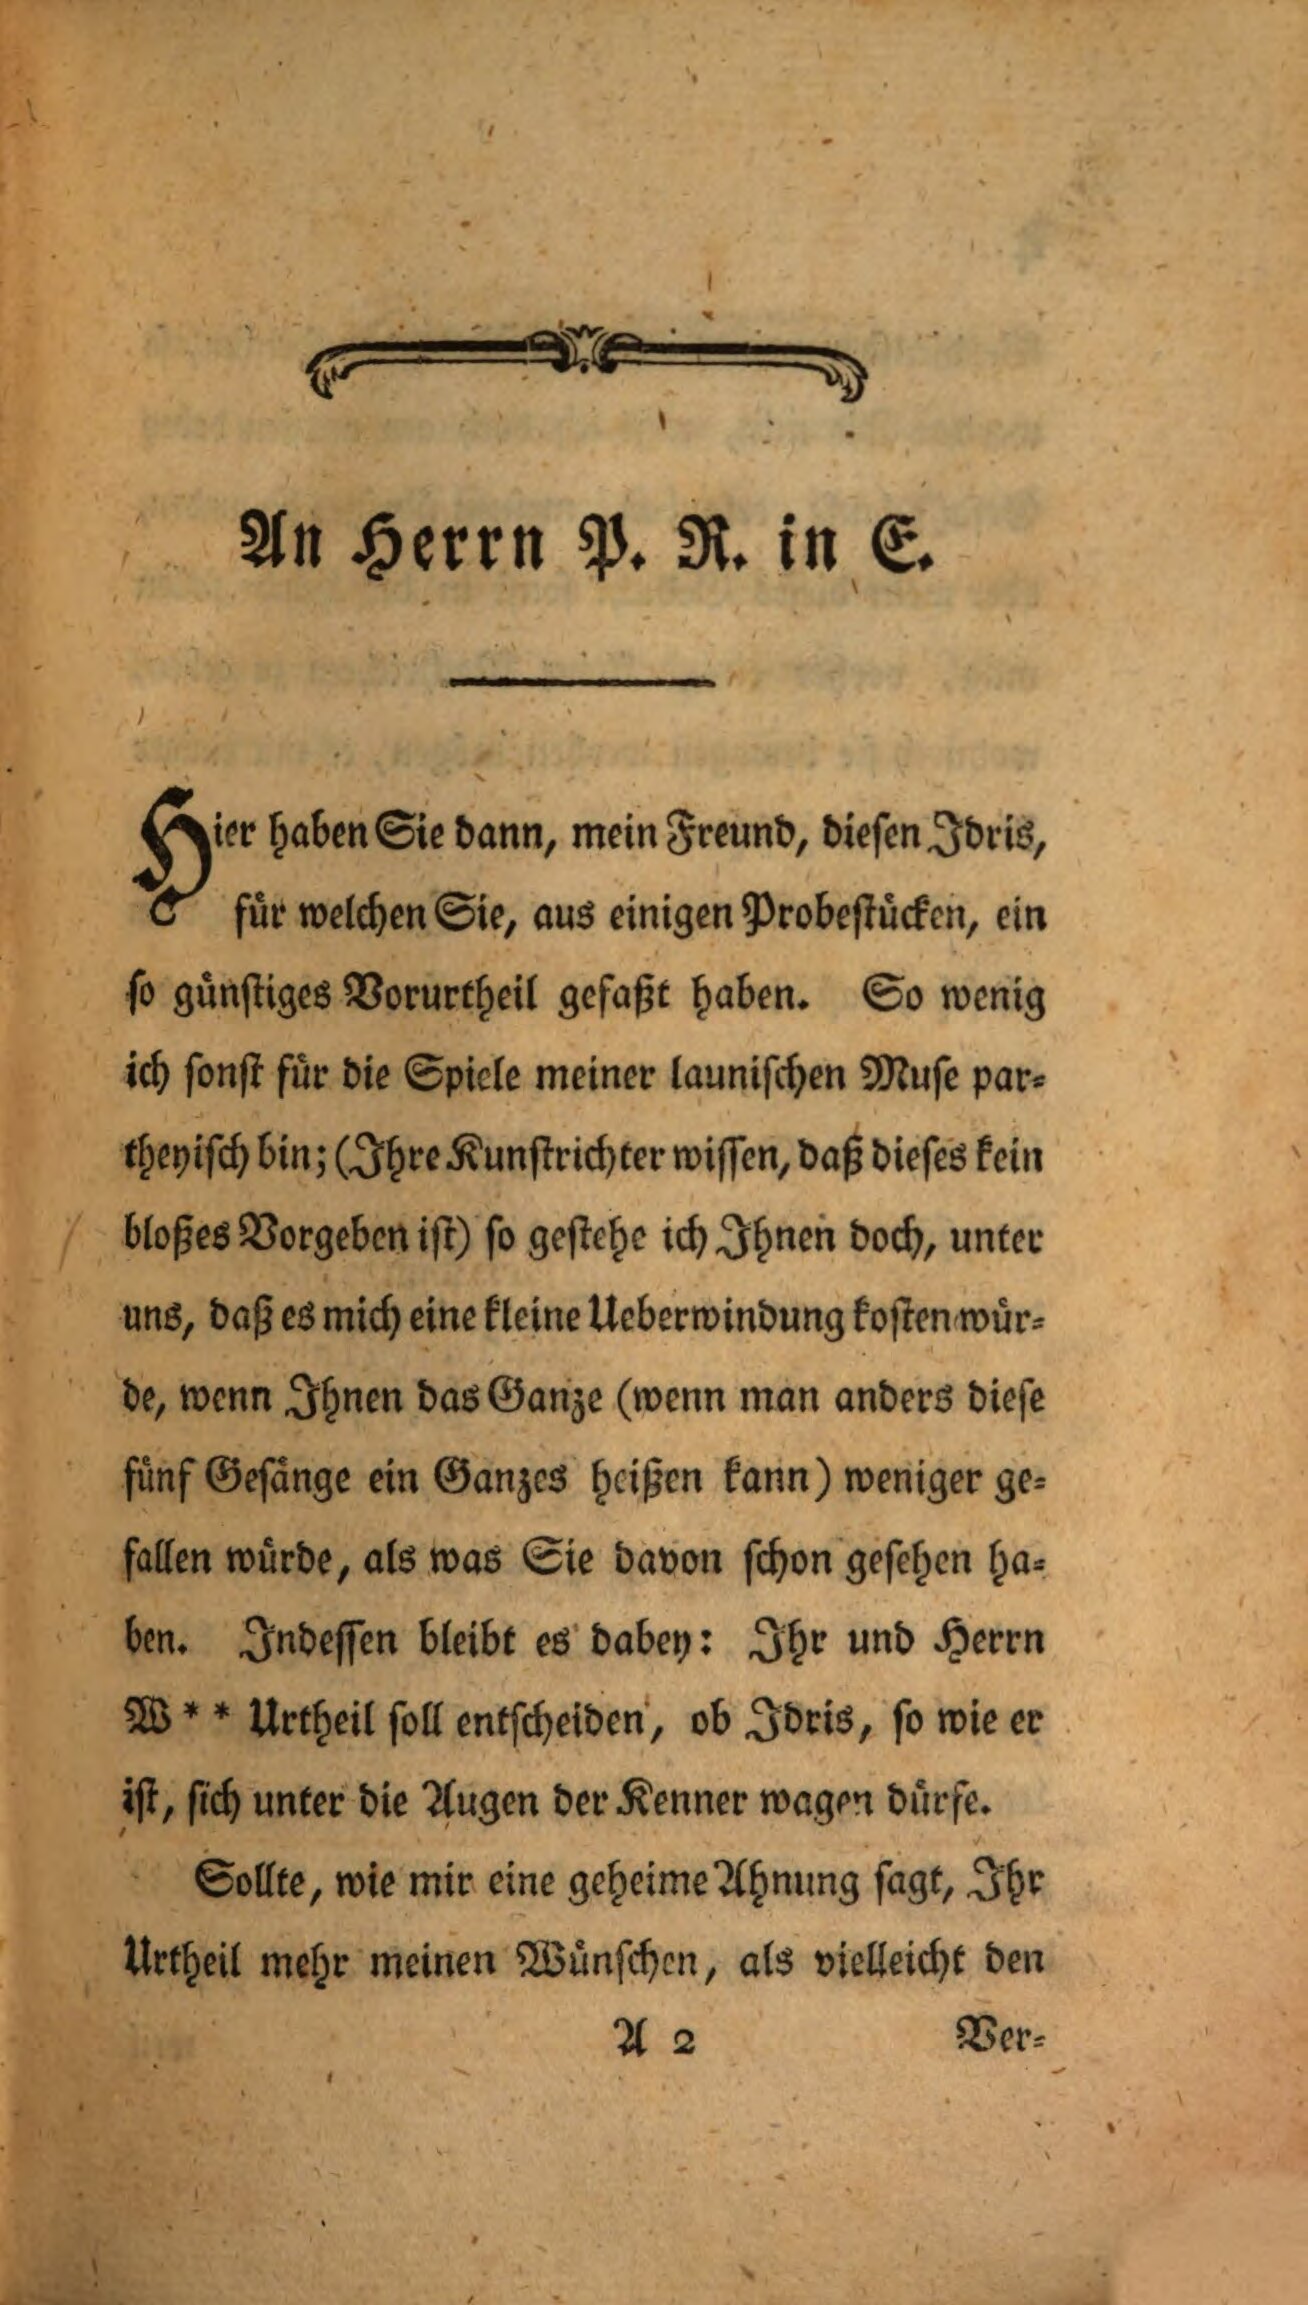 An Herrn P. R. in E.
Hier haben Sie dann, mein Freund, diesen Idris,
für welchen Sie, aus einigen Probestücken, ein
so günstiges Vorurtheil gefaßt haben. So wenig
ich sonst für die Spiele meiner launischen Muse par-
theyisch bin; (Ihre Kunstrichter wissen, daß dieses kein
bloßes Vorgeben ist) so gestehe ich Ihnen doch, unter
uns, daß es mich eine kleine Ueberwindung kosten wür-
de, wenn Ihnen das Ganze (wenn man anders diese
fünf Gesänge ein Ganzes heißen kann) weniger ge-
fallen würde, als was Sie davon schon gesehen ha-
ben. Indessen bleibt es dabey: Ihr und Herrn
W** Urtheil soll entscheiden, ob Idris, so wie er
ist, sich unter die Augen der Kenner wagen dürfe.
Sollte, wie mir eine geheime Ahnung sagt, Ihr
Urtheil mehr meinen Wünschen, als vielleicht den
A 2 Ver-